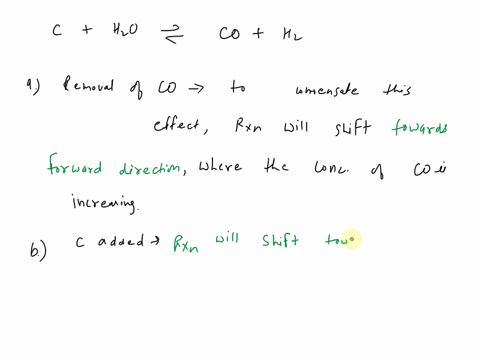 C + H2O ⇌ CO + H2
a.) Removal of CO → to umensate this
effect, Rxn will shift towards
forward direction, where the conc. of CO is
increasing.
b.) C added → Rxn will shift tow